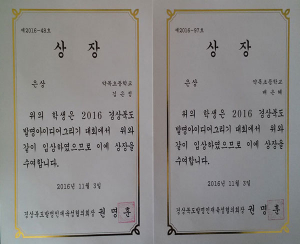 제2016-48호
상 장
은상
약목초등학교
김은정
위의 학생은 2016 경상북도
발명아이디어그리기 대회에서 위와
같이 입상하였으므로 이에 상장을
수여합니다.
2016년 11월 3일
경상북도발명인재육성협의회장 권 명 훈
제2016-97호
상 장
은상
약목초등학교
배은혜
위의 학생은 2016 경상북도
발명아이디어그리기 대회에서 위와
같이 입상하였으므로 이에 상장을
수여합니다.
2016년 11월 3일
경상북도발명인재육성협의회장 권 명 훈